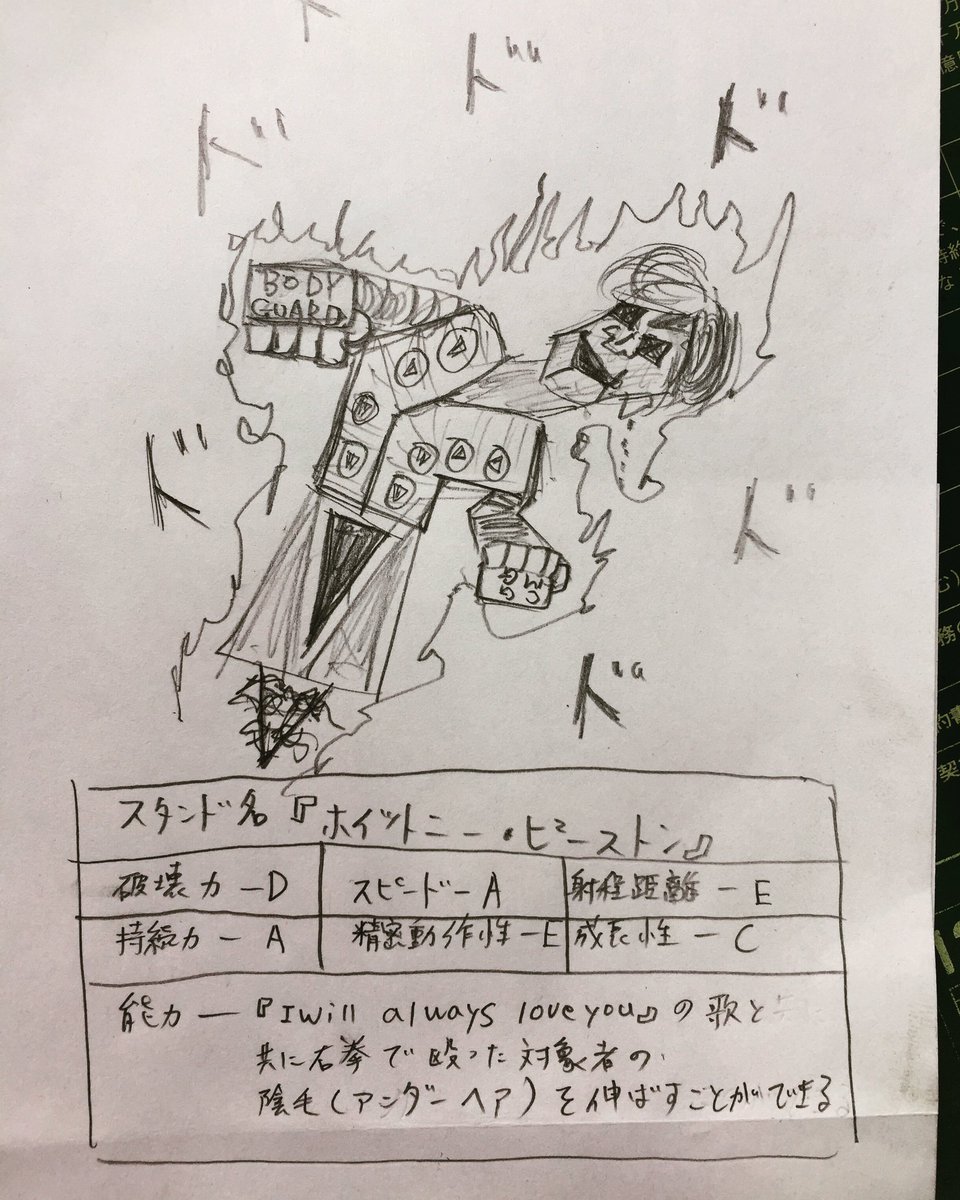 ド
ド
ド
BODY
GUARD
ド
ド
ド
スタンド名『ホイットニー・ヒューストン』
破壊力ーD
スピードーA
射程距離ーE
持続力ーA
精密動作性ーE
成長性ーC
能力ー『I will always love you』の歌と
共に右拳で殴った対象者の
陰毛(アンダーヘア)を伸ばすことができる。